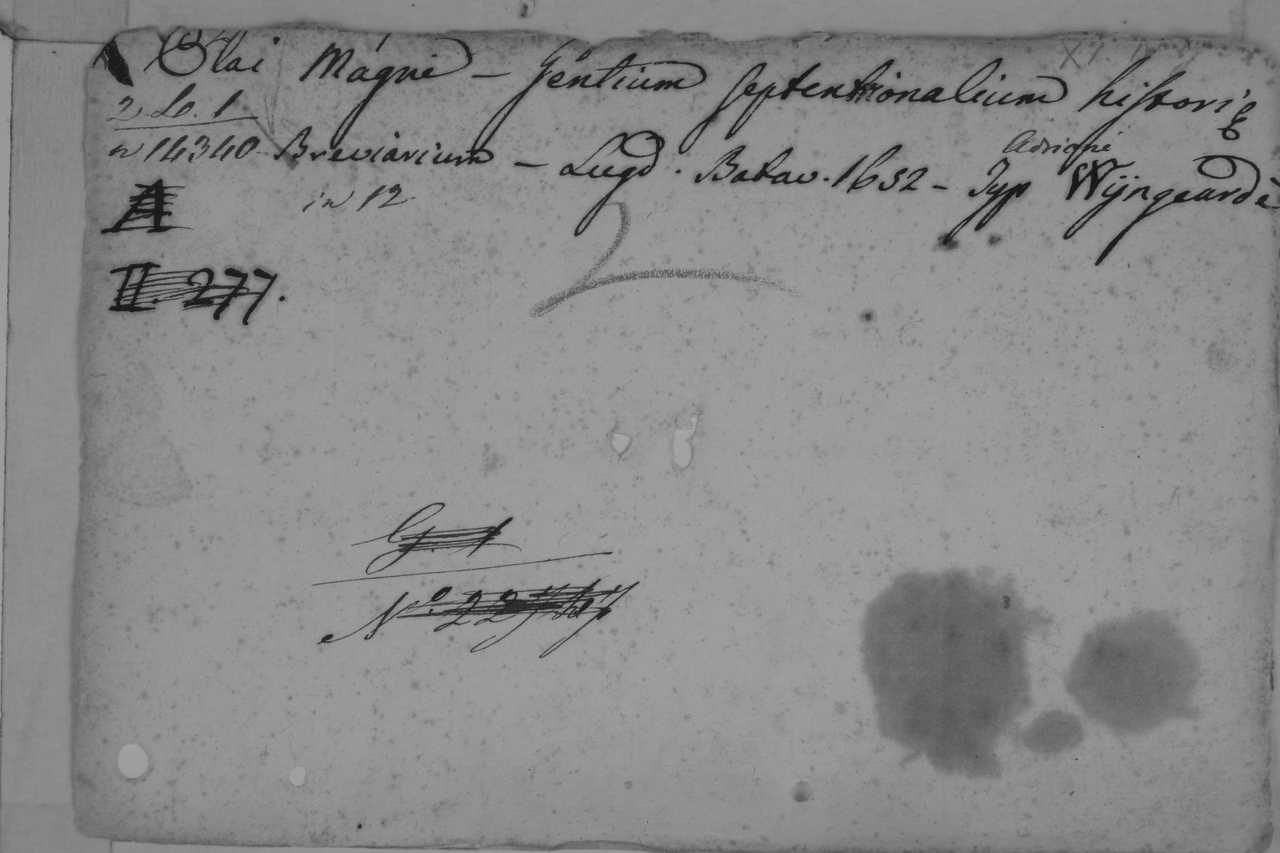 Olai Magni – Gentium septentrionalium historiæ
2 Lo. 1
n 14340 Breviarium – Lugd. Batav. 1652 – Typ Adriani Wijngaarde
in 12
A
II. 277.
2
G. 1
Nº 227